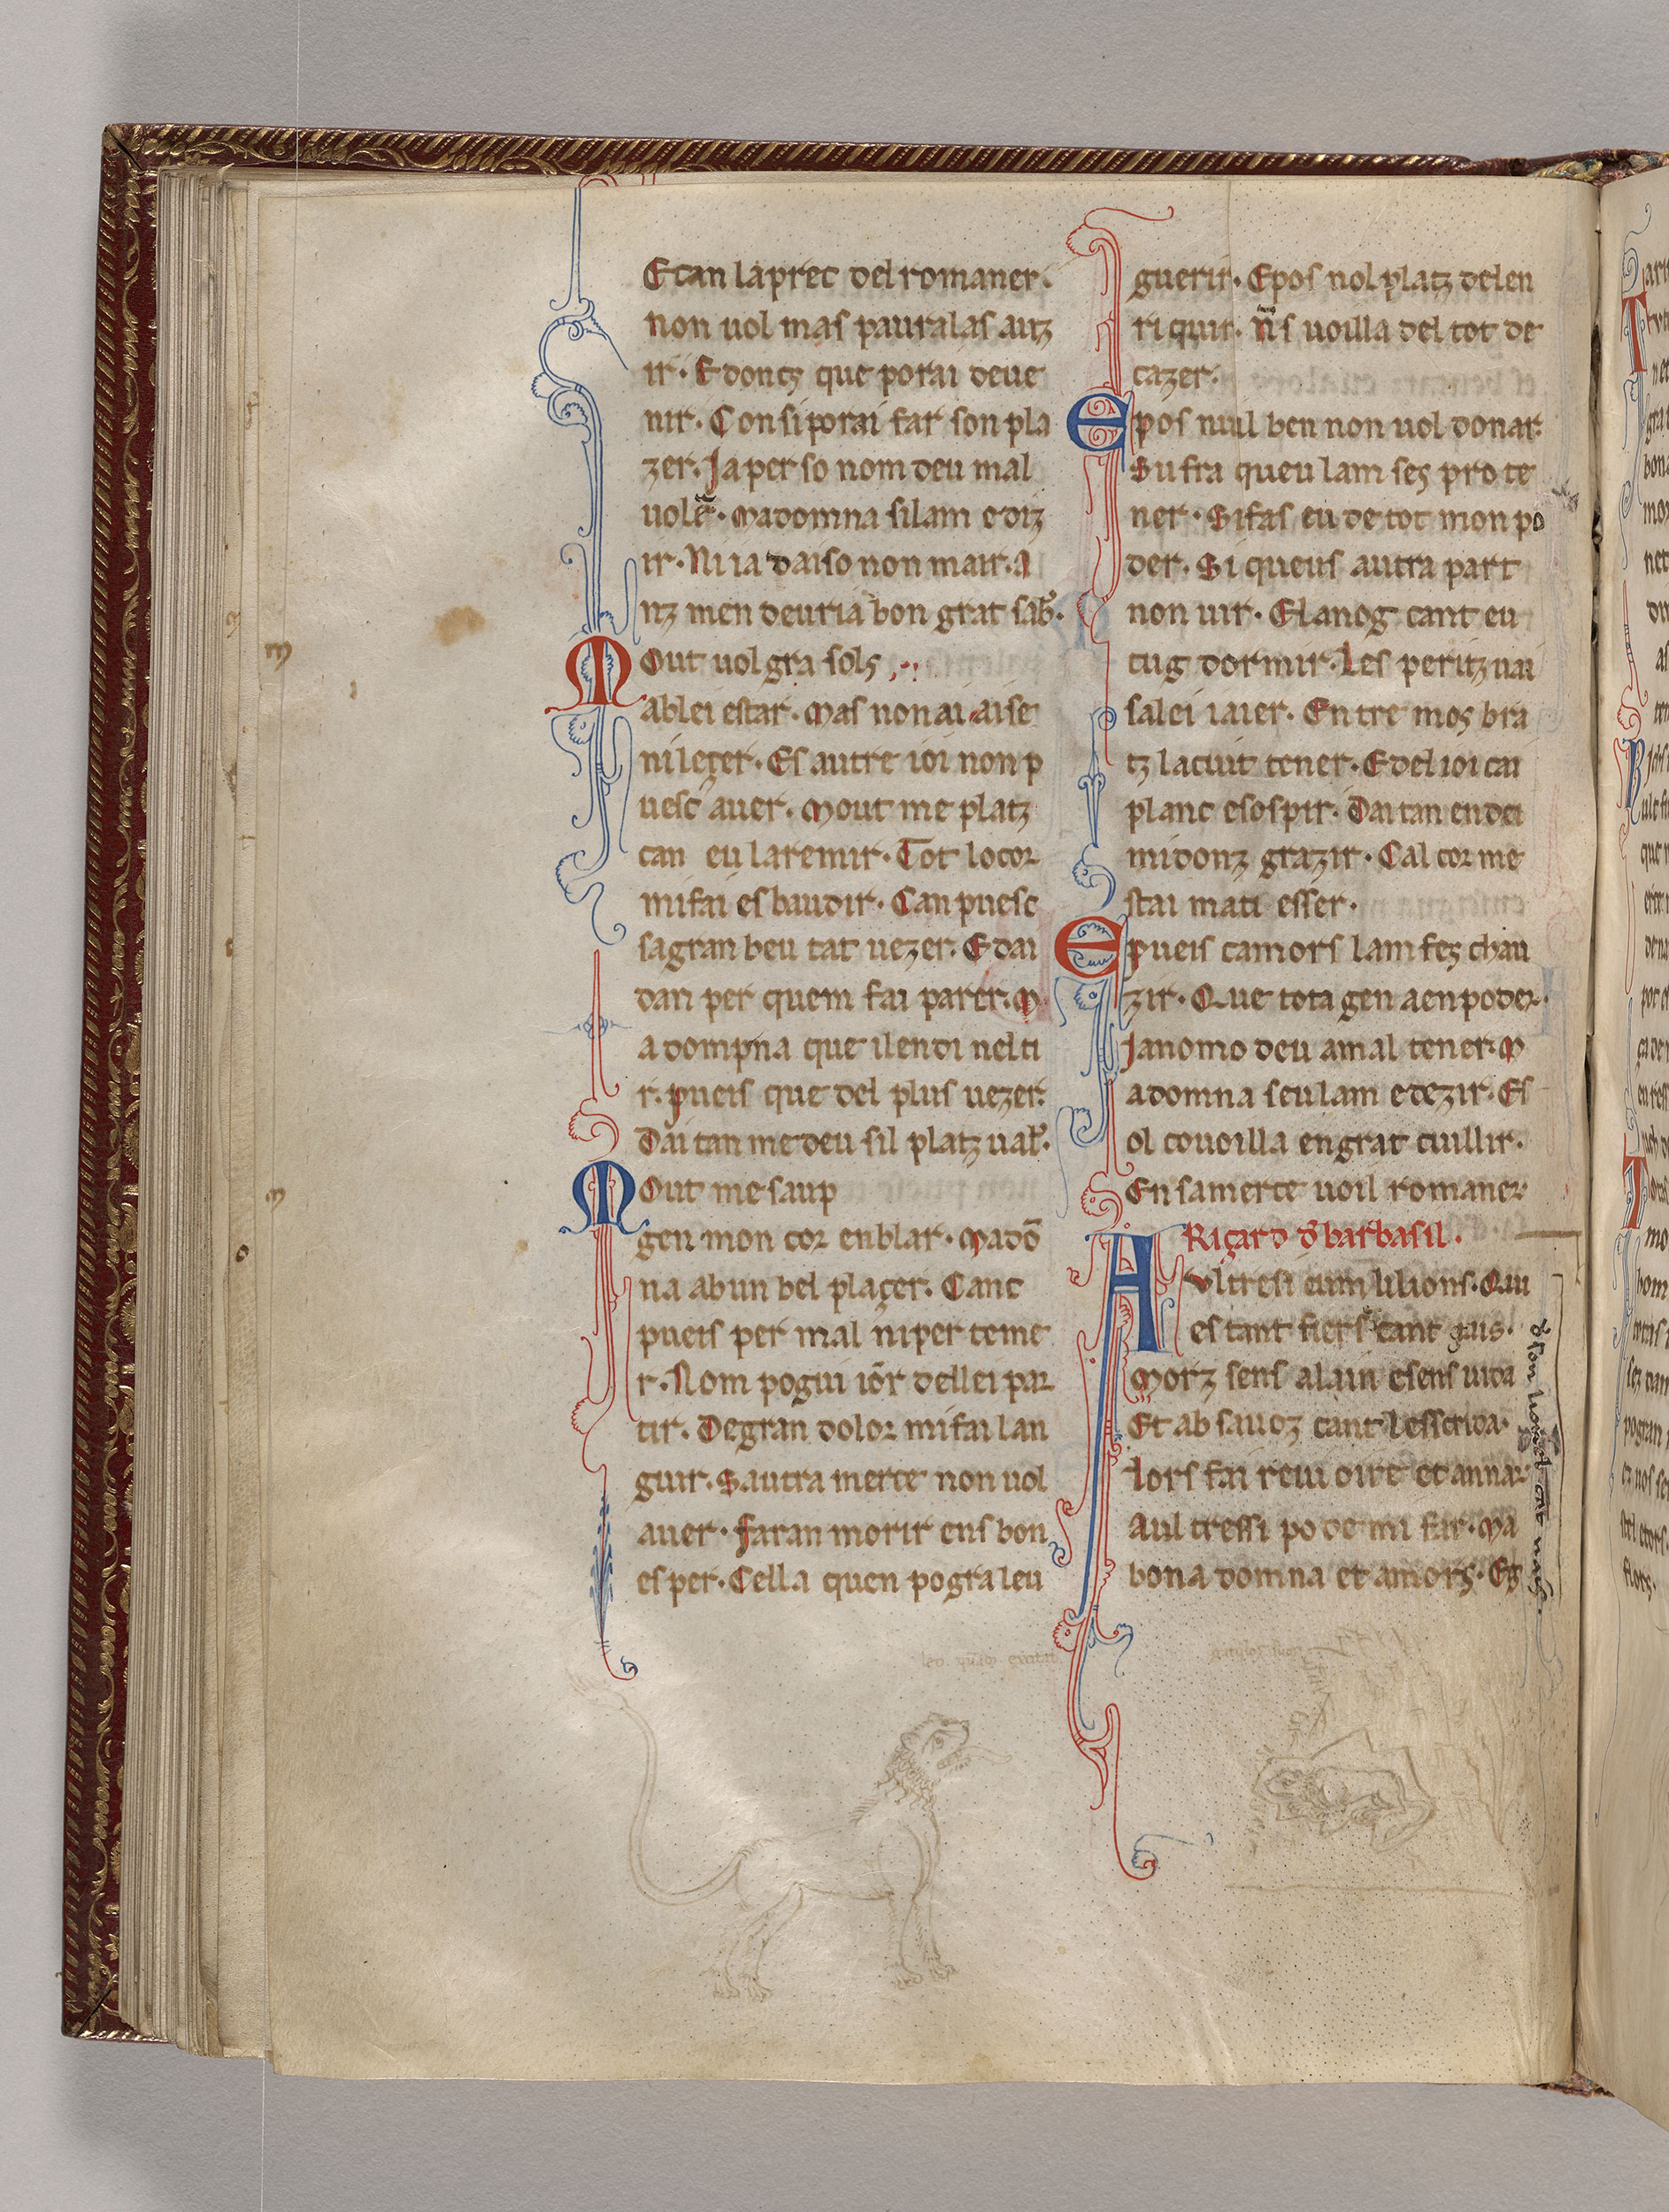 Etan la prec del romaner.
non uol mas pauralas autz
ir. Edoncs que porai deue
nir. Consi porai far son pla
zer. Ja per so nom deu mal
uolẽ. Madomna silam e diz
ir. Ni ia daiso non mair. A
nz men deuria bon grat sab͛.
Mout uolgra sols
ab lei estar. Mas non ai aise
ni leçer. Es autre ioi non p
uesc auer. Mout me platz
can eu la remir. Tot lo cor
mi fai esbaudir. Can puesc
sa gran beutat uezer. E dai
dan per quem fai parer. M
a dompna que ilendi nelti
r. pueis que del plus uezer.
Dai tan me deu sil platz ual͛.
Mout me saup
gen mon cor enblar. Madõ
na ab un bel plaçer. Canc
pueis per mal ni per teme
r. Nom pogui iõr dellei par
tir. De gran dolor mi fai lan
guir. Sautra merce non uol
auer. Faran morir ens bon
esper. Cella quen pogra leu
guerir. E pos nol platz delen
riquir. ñs uoilla del tot de
cazer.
E pos nuil ben non uol donar.
Sufra queu lam ses pro te
ner. Sifas eu de tot mon po
der. Si queus autra part
non uir. El anog cant eu
tug dormir. Les peritz uai
salei iaier. Entre mos bra
tz lacuit tener. E del ioi cai
planc e sospir. Dai tan en dei
midonz grazir. Cal cor me
stai mati e sser.
E pueis camors lam fes chau
zir. Que tota gen a en poder.
Ja nomo deu a mal tener. M
a domna seu lam e dezir. Es
ol couoilla en grat cuillir.
En sa merce uoil romaner
Riçard d͛ barbasil.
Aultresi cum lilions. Qui
es tant fiers cant nais.
Morz sens alain e sens uida
Et ab sauoz cant lesscrida.
Lors fai reuiuire et annar
Aultressi pode mi far. Ma
bona domna et amors. Eg
leo. quãdo excitat
catulos suos